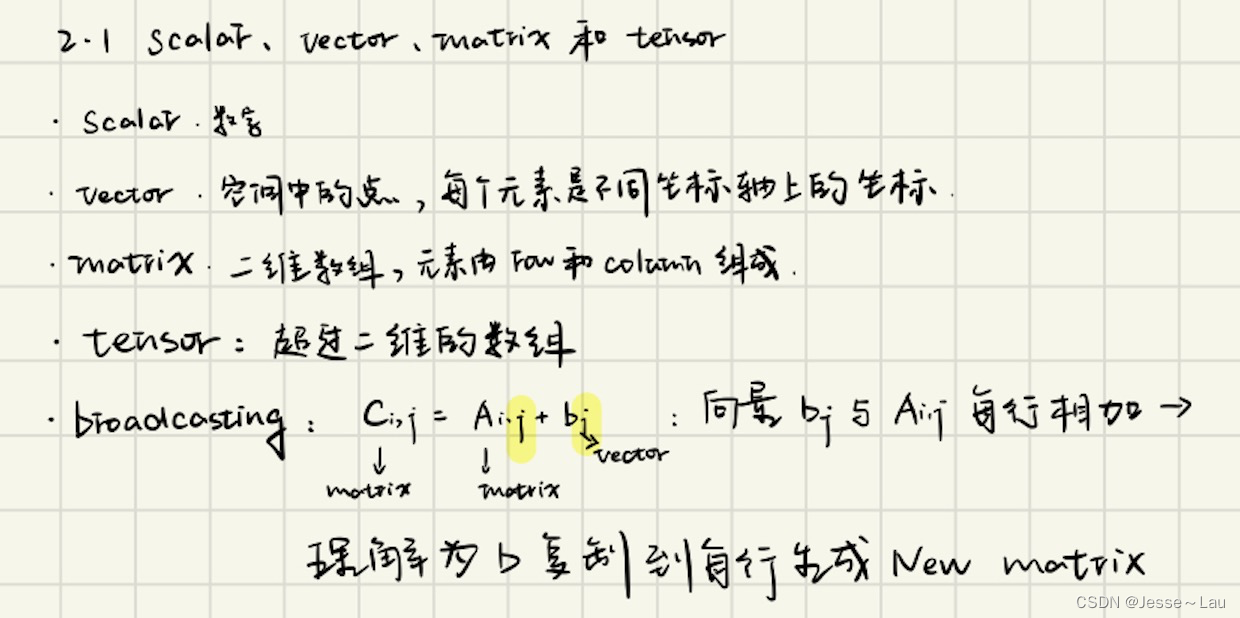 2.1 scalar、vector、matrix 和 tensor
· scalar . 数字
· vector . 空间中的点,每个元素是不同坐标轴上的坐标.
· matrix . 二维数组,元素由row和column组成.
· tensor: 超过二维的数组
· broadcasting: Ci,j = Ai,j + bj : 向量 bj 与 Ai,j 每行相加 →
↓ matrix ↓ matrix → vector
理解为 b 复制到每行生成 New matrix
CSDN @Jesse~Lau